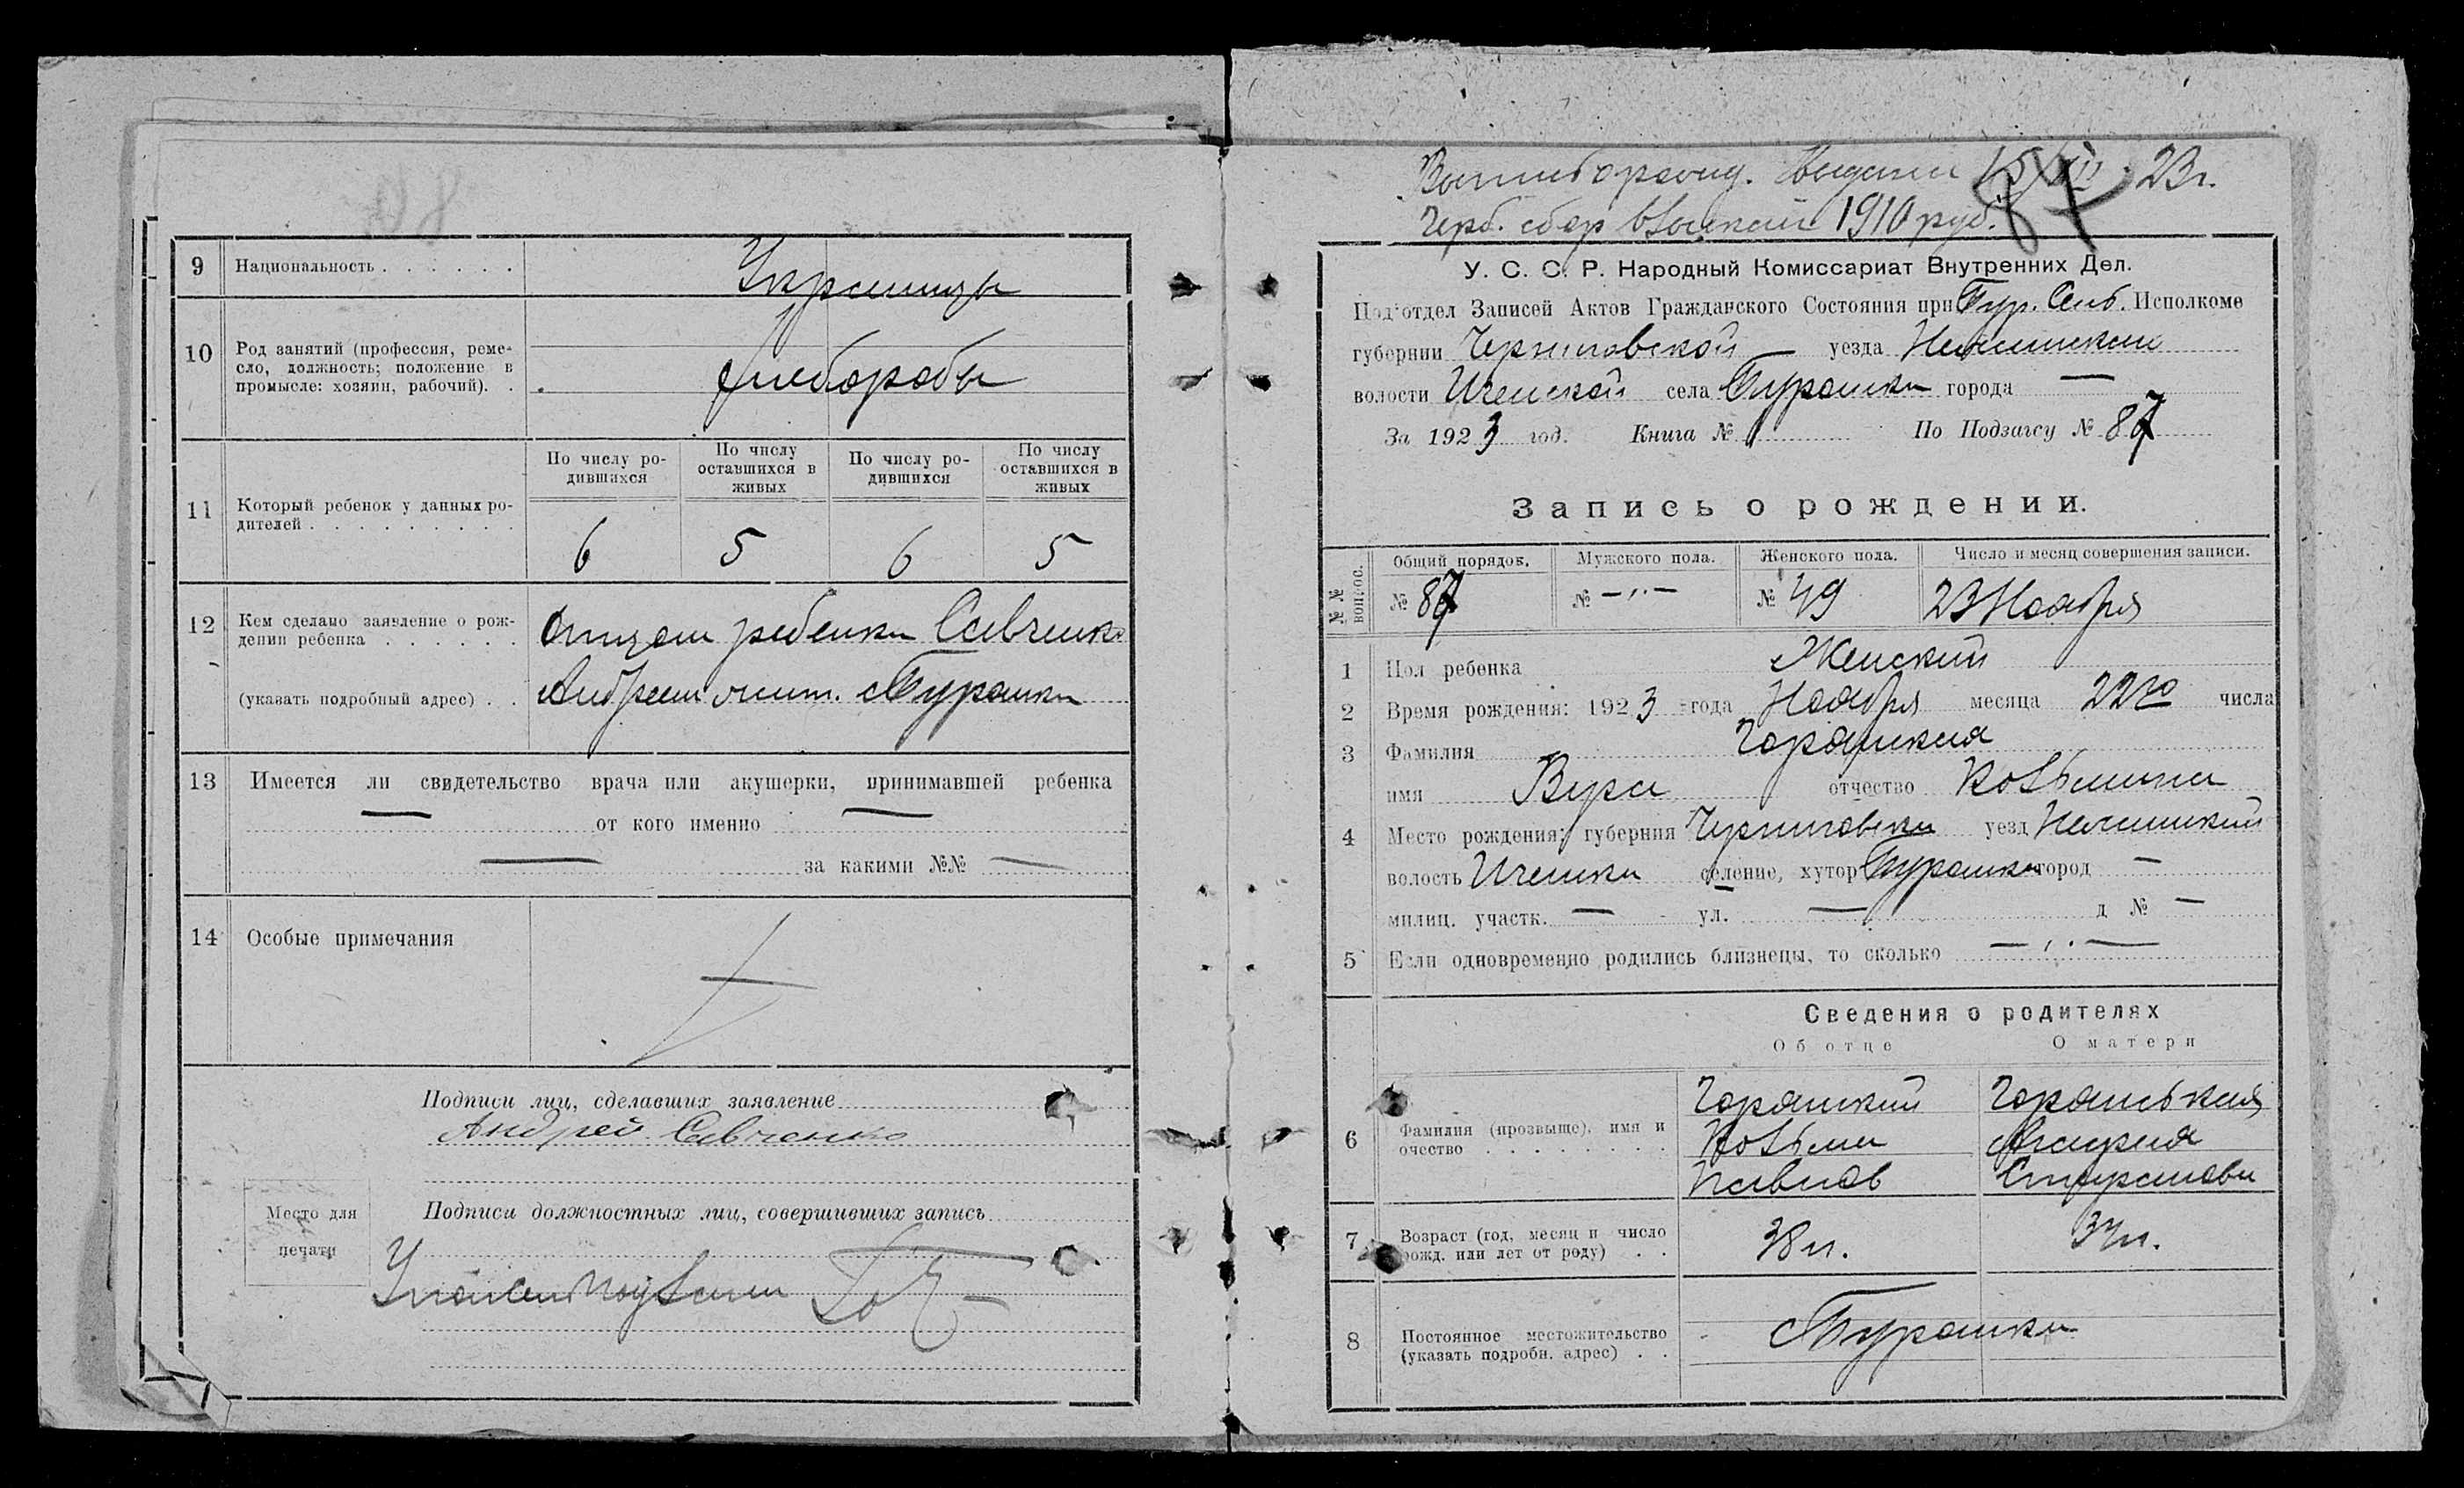 9 Национальность . . . . . . Украинцы
10 Род занятий (профессия, реме-
сло, должность; положение в
промысле: хозяин, рабочий). . Хлеборобы
По числу ро-
дившихся
По числу
оставшихся в
живых
По числу ро-
дившихся
По числу
оставшихся в
живых
11 Который ребенок у данных ро-
дителей . . . . . . . . . 6 5 6 5
12 Кем сделано заявление о рож-
дении ребенка . . . . . . Отцом ребенка Савченко
(указать подробный адрес) . . Андреем жит. с Бурамки
13 Имеется ли свидетельство врача или акушерки, принимавшей ребенка
— от кого именно —
— за какими №№ —
14 Особые примечания
Подписи лиц, сделавших заявление
Андрей Савченко
Подписи должностных лиц, совершивших запись
Место для
печати
Выпись Выдана 15/XII 23 г.
Герб. сбор взыскан 1910 руб.
87
У. С. С. Р. Народный Комиссариат Внутренних Дел.
Под'отдел Записей Актов Гражданского Состояния при Исполкоме
губернии Черниговской уезда Нежинского
волости Иченской села города —
За 1923 год. Книга № 1 По Подзагсу № 87
Запись о рождении.
№ №
вопрос.
Общий порядок. Мужского пола. Женского пола. Число и месяц совершения записи.
№ 87 № —„— № 49 23 Ноября
1 Пол ребенка Женский
2 Время рождения: 1923 года Ноября месяца 22го числа
3 Фамилия
имя Вера отчество Козьмина
4 Место рождения: губерния Черниговска уезд Нежинский
волость селение, хутор город —
милиц. участк. — ул. — д № —
5 Если одновременно родились близнецы, то сколько —„—
Сведения о родителях
Об отце О матери
6 Фамилия (прозвыще), имя и
очество . . . . . . . .
Козьма
Павлов
7 Возраст (год, месяц и число
рожд. или лет от роду) . . 38 л. 37 л.
8 Постоянное местожительство
(указать подробн. адрес) . .